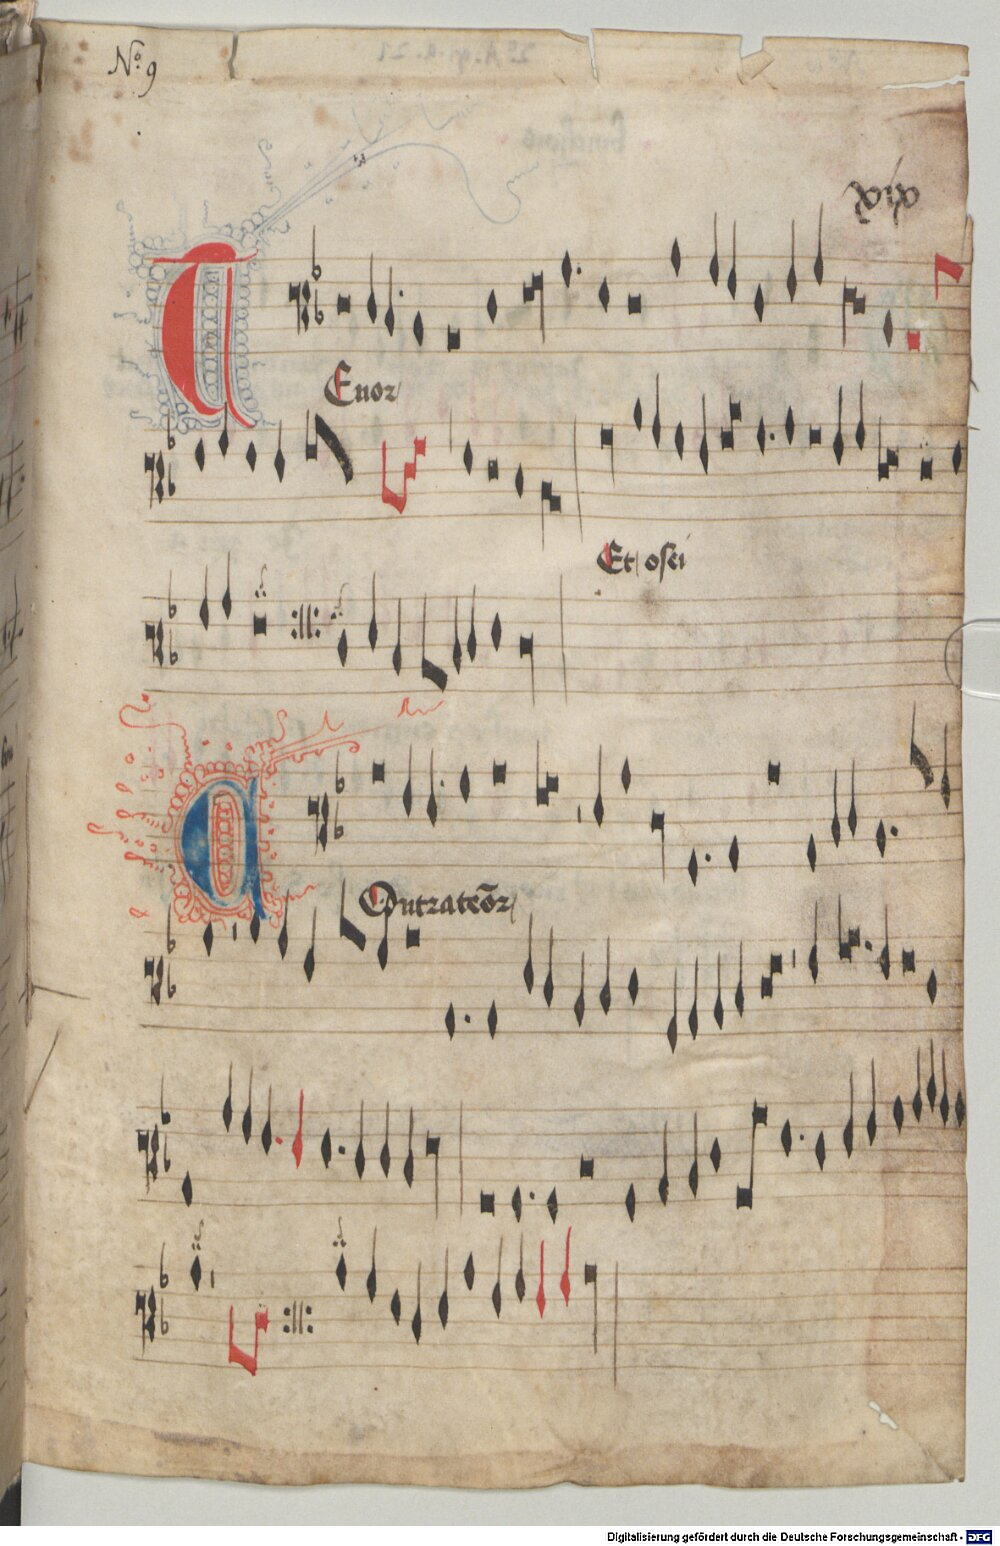 No. 9
xix
Tenor
Et osci
Contrateōr
Digitalisierung gefördert durch die Deutsche Forschungsgemeinschaft - DFG